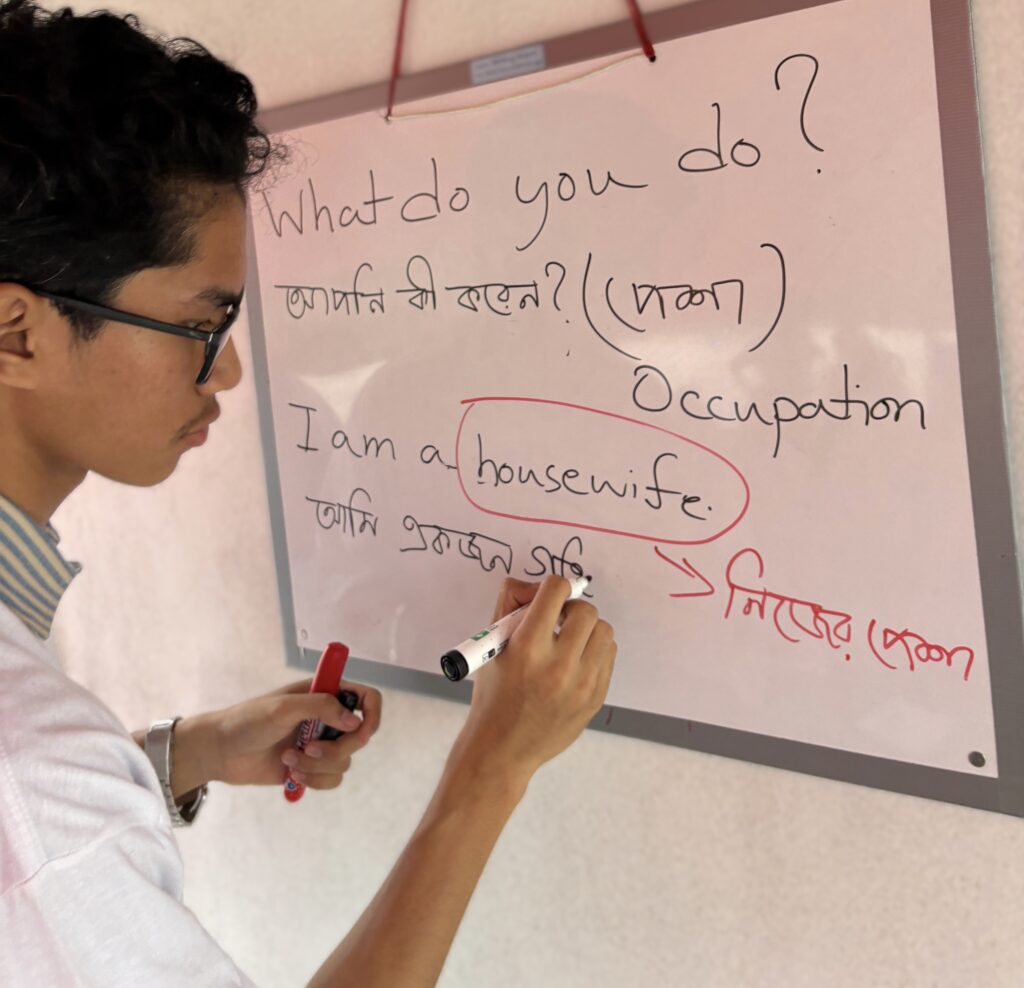 What do you do?
আপনি কী করেন? (পেশা)
Occupation
I am a housewife.
আমি একজন গৃহি
→ নিজের পেশা